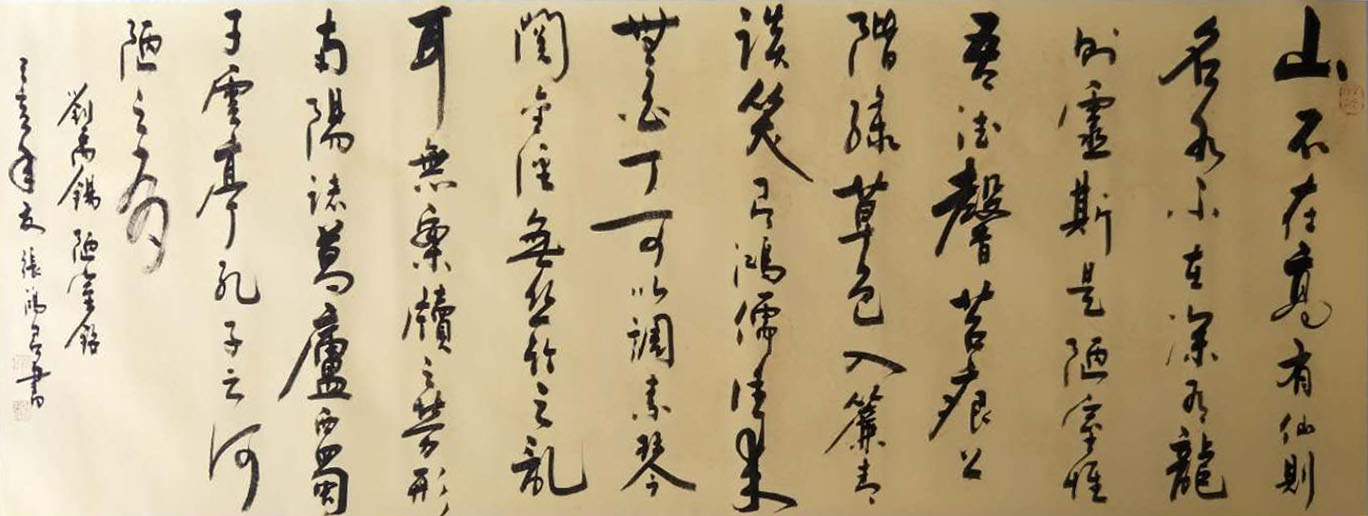 山不在高有仙則
名水不在深有龍
則靈斯是陋室惟
吾德馨苔痕上
階綠草色入簾青
談笑有鴻儒往來
無白丁可以調素琴
閱金經無絲竹之亂
耳無案牘之勞形
南陽諸葛廬西蜀
子雲亭孔子云何
陋之有
劉禹錫陋室銘
亥年 張鴻 書